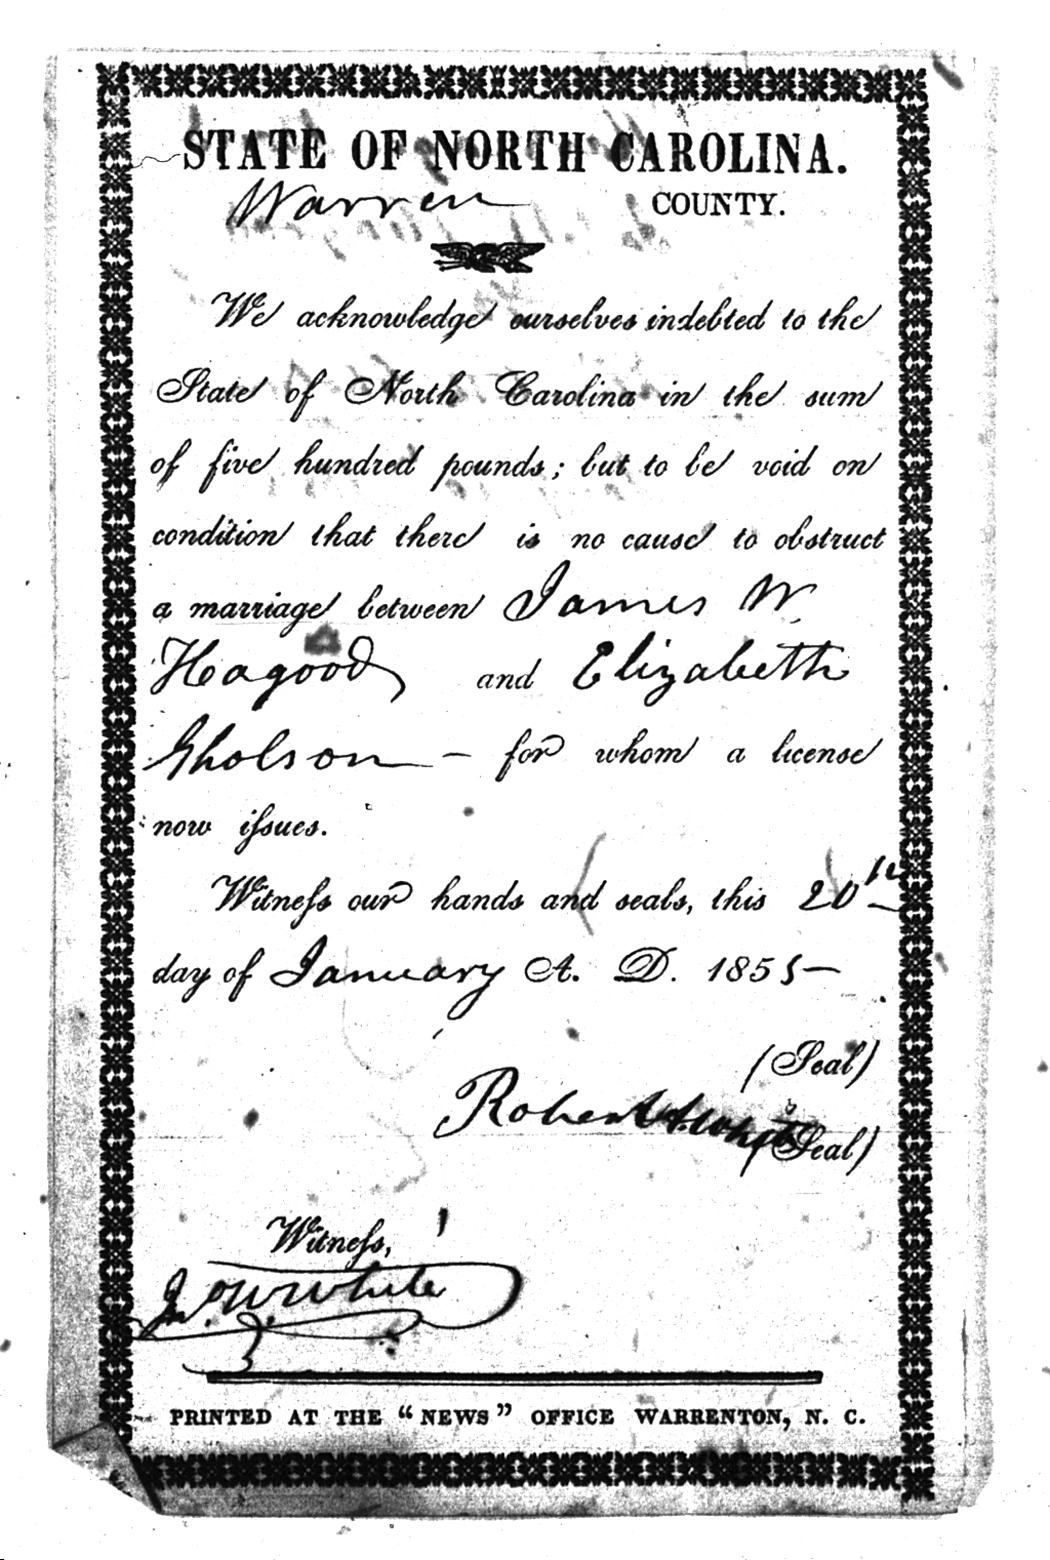 STATE OF NORTH CAROLINA.
Warren COUNTY.
We acknowledge ourselves indebted to the
State of North Carolina in the sum
of five hundred pounds; but to be void on
condition that there is no cause to obstruct
a marriage between James W
Hagood and Elizabeth
Gholson — for whom a license
now issues.
Witness our hands and seals, this 20th
day of January A. D. 1855—
(Seal)
Robert A. White (Seal)
Witness,
Jno. W. White
PRINTED AT THE “NEWS” OFFICE WARRENTON, N. C.